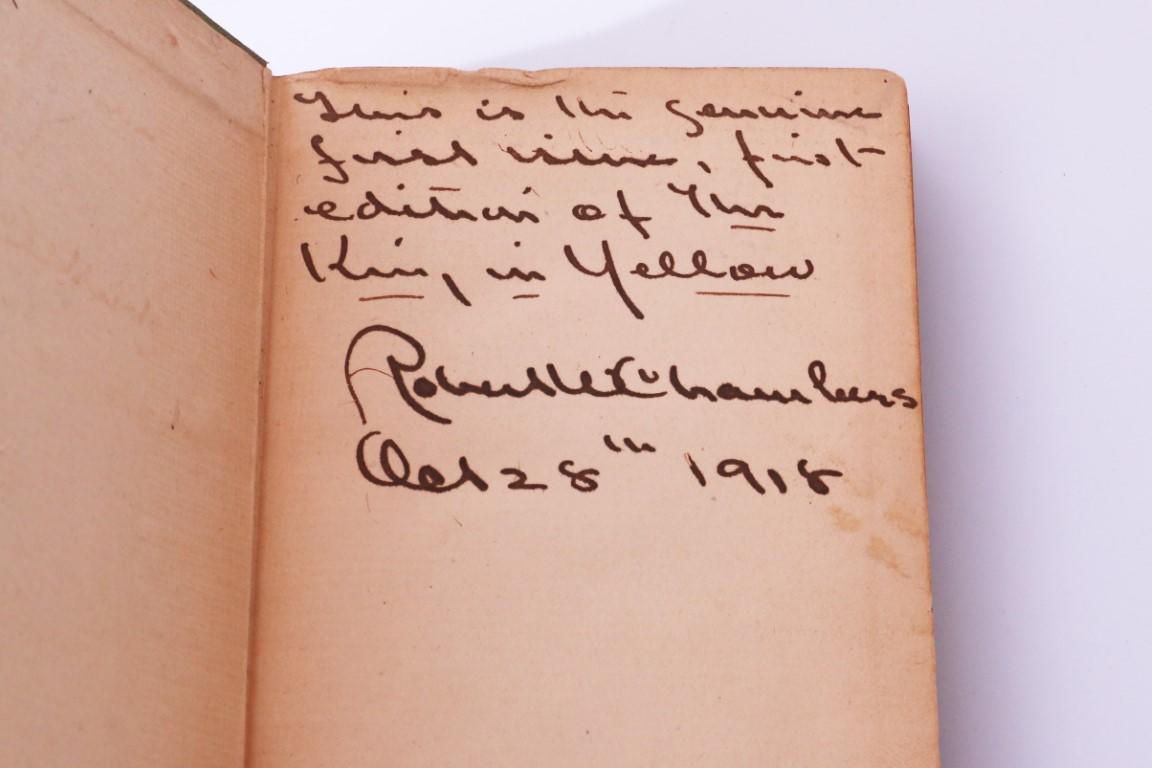 This is the genuine
first issue, first
edition of The
King in Yellow
Robert W Chambers
Oct 28th 1918